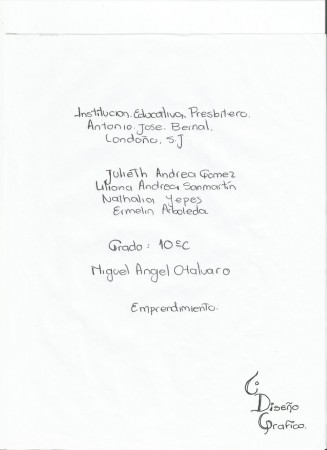 Institucion Educativa Presbitero.
Antonio Jose Bernal.
Londoño, S.J
Julieth Andrea Gomez
Liliana Andrea Sanmartin
Nathalia Yepes
Ermelin Arboleda
Grado: 10°C
Miguel Angel Otalvaro
Emprendimiento.
Diseño
Grafico.